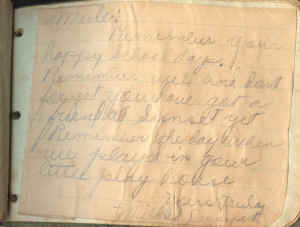 Remember your
happy School days.
Remember me and dont
forget you have got a
friend at Sunset yet
Remember the day when
we played in your
little play house
Yours truly